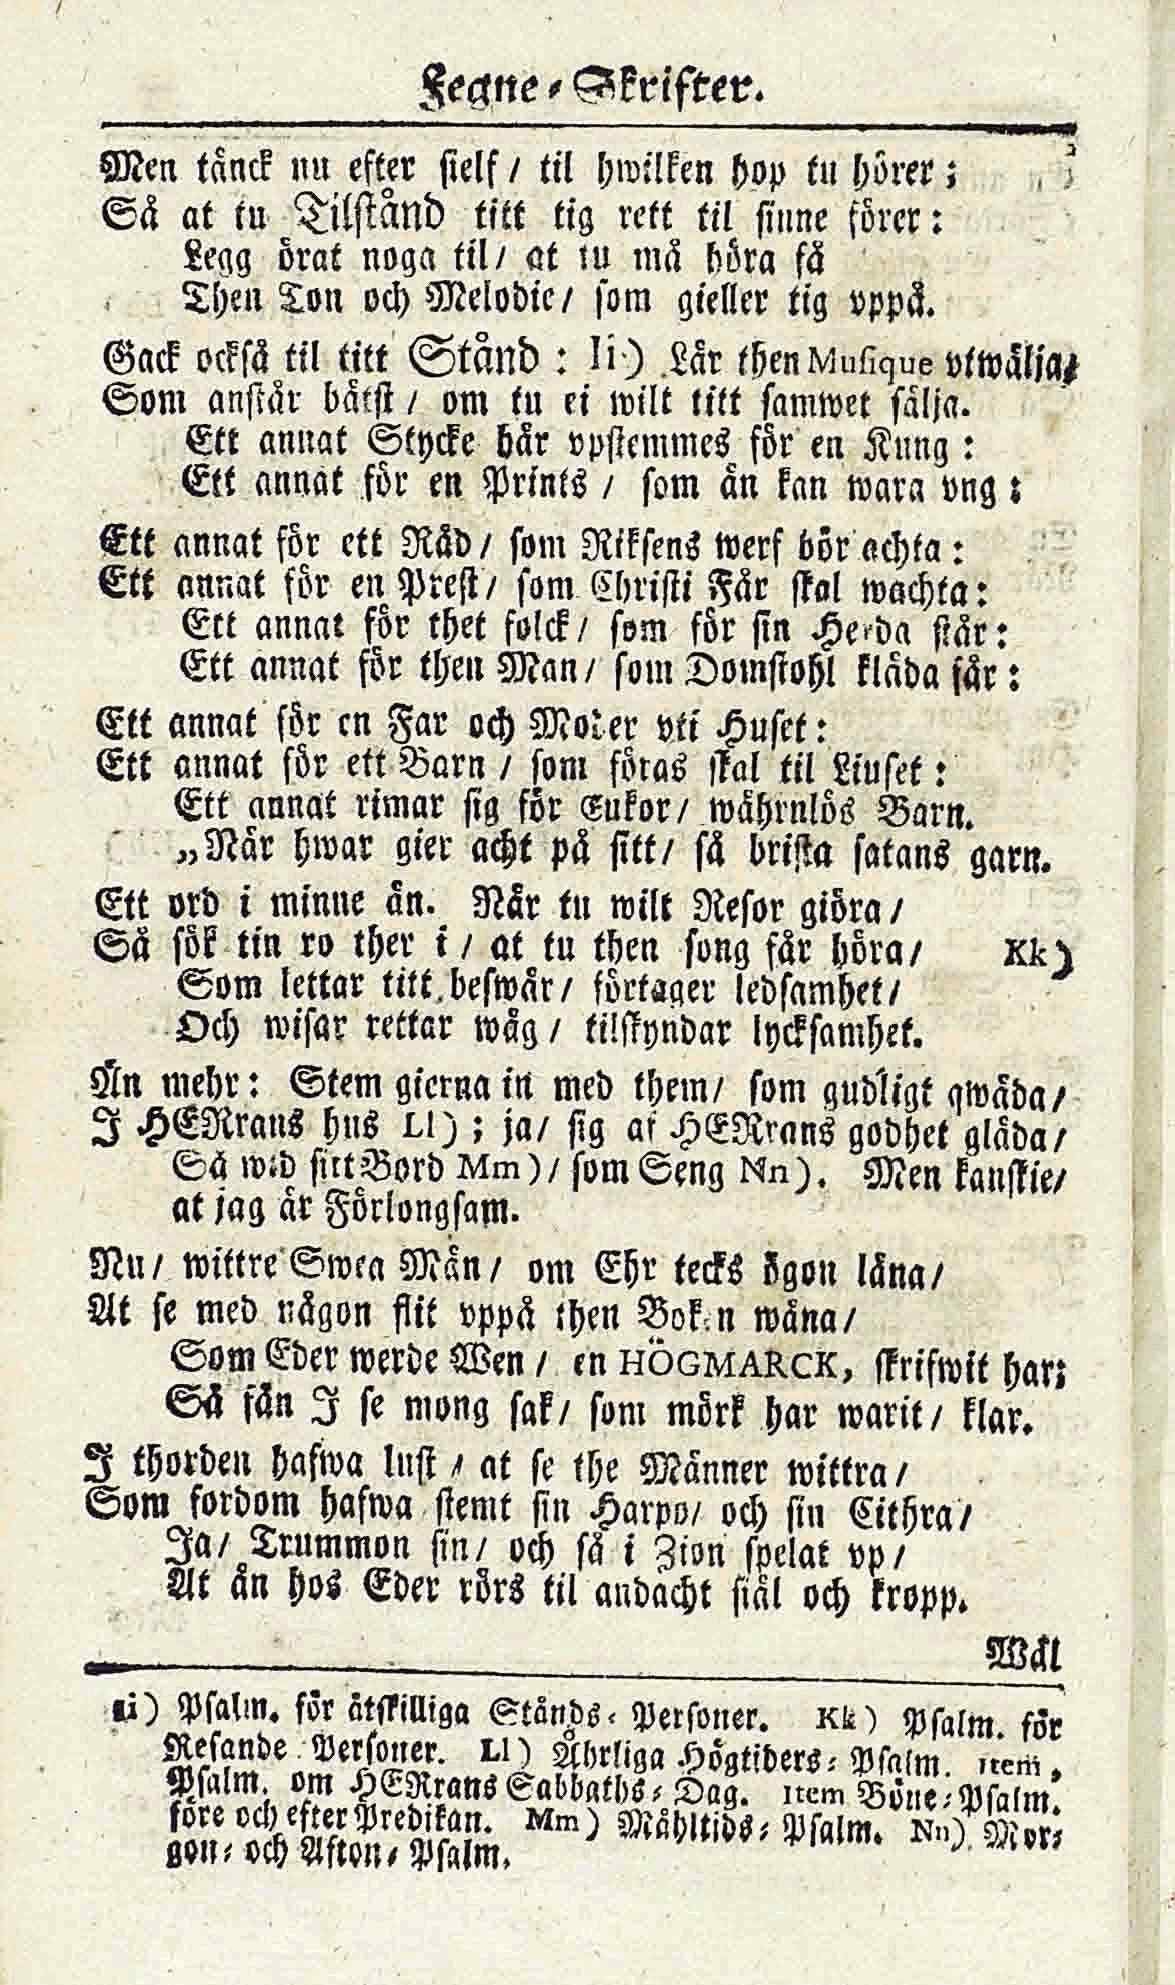 Fegne-Skrifter.
Men tänck nu efter sielf / til hwilken hop tu hörer ;
Så at tu Tilstånd titt tig rett til sinne förer :
Legg örat noga til / at tu må höra få
Then Ton och Melodie / som gieller tig vppå.
Gack också til titt Stånd : Ii) Lär then Musique vtwälja /
Som anstår bätst / om tu ei wilt titt samwet sälja.
Ett annat Stycke bår vpstemmes för en Kung :
Ett annat för en Prints / som än kan wara vng :
Ett annat för ett Råd / som Riksens werf bör achta :
Ett annat för en Prest / som Christi Får skal wachta :
Ett annat för thet folck / som för sin Herda står :
Ett annat för then Man / som Domstohl kläda får :
Ett annat för en Far och Moder vti Huset :
Ett annat för ett Barn / som föras skal til Liuset :
Ett annat rimar sig för Enkor / währnlös Barn.
„När hwar gier acht på sitt / så brista satans garn.
Ett ord i minne än. När tu wilt Resor giöra /
Så sök tin ro ther i / at tu then song får höra / Kk)
Som lettar titt beswär / förtager ledsamhet /
Och wisar rettar wäg / tilskyndar lycksamhet.
Än mehr : Stem gierna in med them / som gudligt qwäda /
I HERrans hus Ll) ; ja / sig af HERrans godhet gläda /
Så wid sitt Bord Mm) / som Seng Nn). Men kanskie /
at jag är Förlongsam.
Nu / wittre Swea Män / om Ehr tecks ögon läna /
At se med någon flit vppå then Boken wäna /
Som Eder werde Wen / en HÖGMARCK, skrifwit har ;
Så fån I se mong sak / som mörk har warit / klar.
I thorden hafwa lust / at se the Männer wittra /
Som fordom hafwa stemt sin Harpo / och sin Cithra /
Ja / Trummon sin / och så i Zion spelat vp /
At än hos Eder rörs til andacht siäl och kropp.
Wäl
Ii) Psalm. för åtskilliga Stånds-Personer. Kk) Psalm. för
Resande Personer. Ll) Åhrliga Högtiders-Psalm. item,
Psalm. om HERrans Sabbaths-Dag. item Böne-Psalm.
före och efter Predikan. Mm) Måhltids-Psalm. Nn) Mor-
gon- och Afton-Psalm.